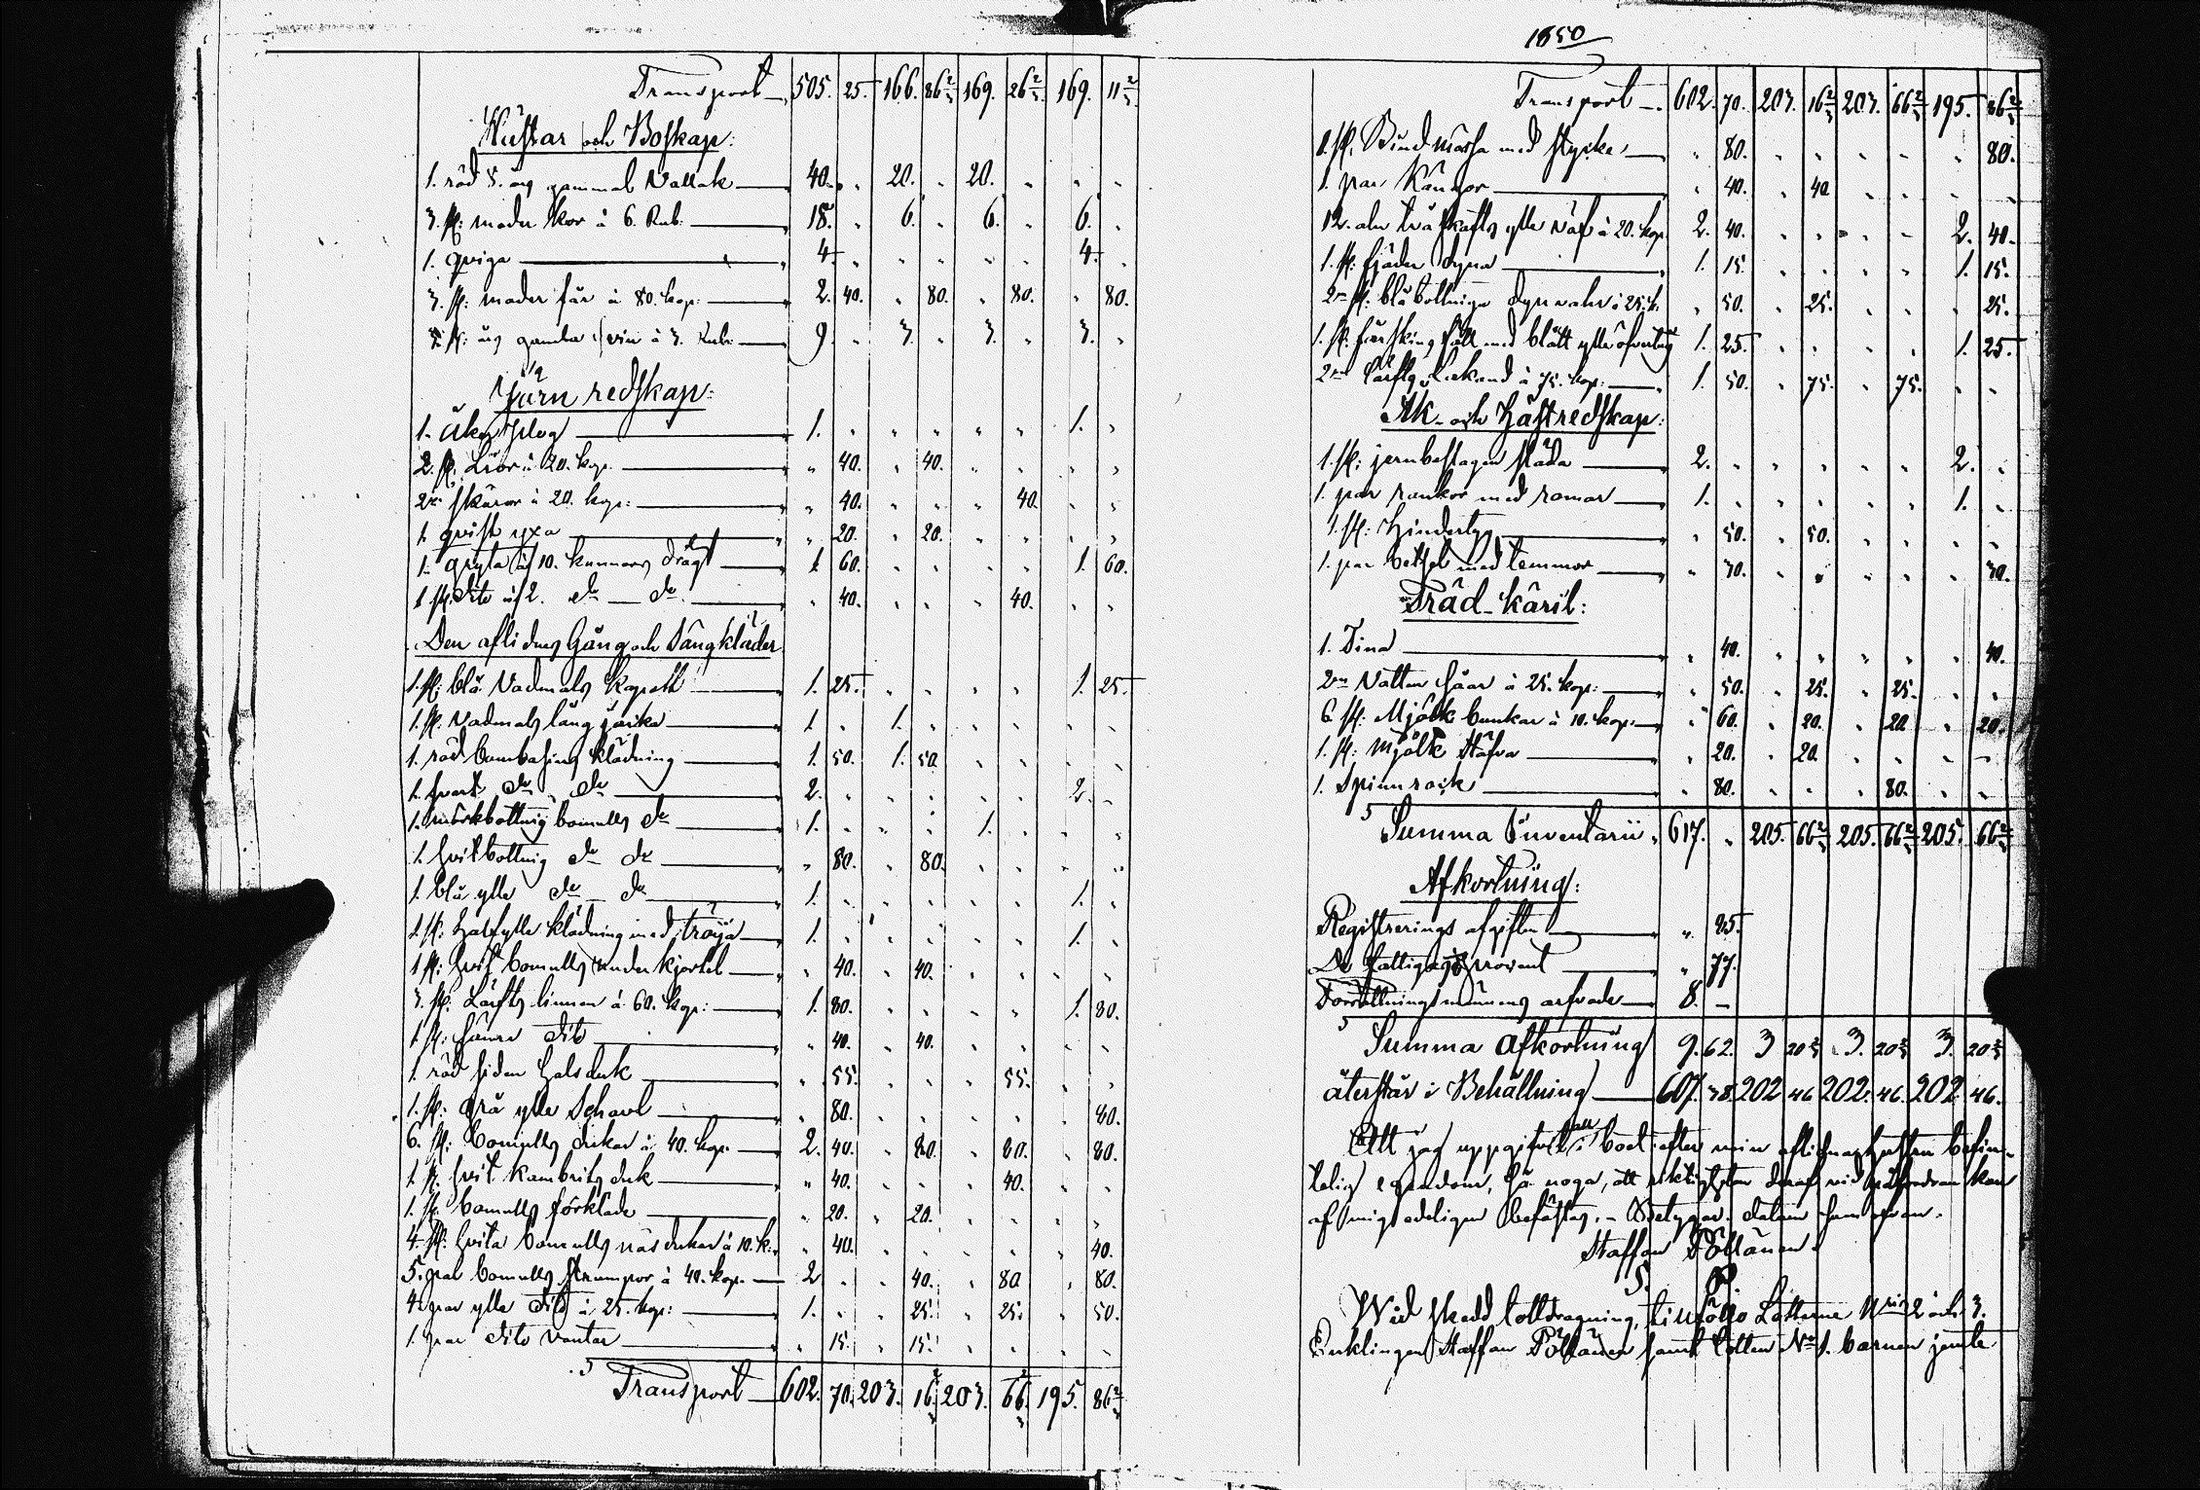 Transport 505. 25. 166. 86 2/3 169. 26 2/3 169. 11 2/3
Hästar och Boskap:
1. röd 8. årg gammal Vallak 40. " 20. " 20. " " "
3. st: moder kor à 6. Rub. 18. " 6. " 6. " 6. "
1. qviga 4. " " " " " 4. "
3. st: moder får à 80. kop: 2. 40. " 80. " 80. " 80.
3. st: årg gamla svin à 3. Rub: 9. " 3. " 3. " 3. "
Järn redskap:
1. Åker plog 1. " " " " " 1. "
2. st. Liör à 20. kop. " 40. " 40. " " " "
2ne skäror à 20. kop: " 40. " " " 40. " "
1. qvist yxa " 20. " 20. " " " "
1. gryta af 10. kannors drägt 1 60. " " " " 1. 60.
1 st. dito af 2. do — do. " 40. " " " 40. " "
Den aflidnes Gång och Sängkläder
1. st: blå Vadmals Kapott 1. 25. " " " " 1. 25.
1. st. Vadmals lång jacka 1 " 1. " " " " "
1. röd bombasins klädning 1. 50. 1. 50. " " " "
1. svart do " do 2. " " " " " 2. "
1. mörkbottnig bomulls do 1. " " " 1. " " "
1. hvitbottnig do do " 80. " 80. " " " "
1. blå ylle do — do 1. " " " " " 1. "
1. st: halfylle klädning med tröja 1. " " " " " 1. "
1 st: hvit bomulls under kjortel " 40. " 40. " " " "
3. st. Lärfts linnen à 60. kop: 1. 80. " " " " 1. 80.
1 st: sämre dito " 40. " 40. " " " "
1. röd siden halsduk " 55. " " " 55. " "
1. st: grå ylle Schavl " 80. " " " " " 80.
6. st: bomulls dukar à 40. kop. 2. 40. " 80. " 80. " 80.
1. st. hvit kambrits duk " 40. " " " 40. " "
1. st. bomulls förkläde " 20. " 20. " " " "
4. st: hvita bomulls näsdukar à 10. k: " 40. " " " " " 40.
5. par bomulls strumpor à 40. kop. 2 " " 40. " 80 " 80.
4. par ylle dito à 25. kop: 1. " " 25. " 25. " 50.
1. par dito vantar " 15. " 15. " " " "
Transport 602. 70. 203. 16 2/3 203. 66 2/3 195. 86 2/3
1850
Transport 602. 70. 203. 16 2/3 203. 66 2/3 195. 86 2/3
1. st. Bindmössa med stycke " 80. " " " " " 80.
1. par Kängor " 40. " 40. " " " "
12. aln två skafts ylle väf à 20. kop. 2. 40. " " " " 2. 40.
1. st: fjäder dyna 1. 15. " " " " 1. 15.
2ne st: blå bottniga dynvahr à 25. k. " 50. " 25. " " " 25.
1. st. fårskins fäll med blått ylle öfvertyg 1. 25. " " " " 1. 25.
2ne Lärfts Lakand à 75. kop: 1. 50. " 75. " 75. " "
Åk- och Hästredskap:
1. st: jernbeslagen släda 2. " " " " " 2. "
1. par rankor med ramar 1. " " " " " 1. "
1. st: Hindertyg " 50. " 50. " " " "
1. par betsel med temmor " 30. " " " " " 30.
Träd-käril:
1. Tina " 40. " " " " " 40.
2ne Vatten såar à 25. kop: " 50. " 25. " 25. " "
6. st: Mjölk bunkar à 10. kop. " 60. " 20. " 20. " 20.
1. st: Mjölk stäfva " 20. " 20. " " " "
1. Spinnrock " 80. " " " 80. " "
Summa Inventarii 617. " 205. 66 2/3 205. 66 2/3 205. 66 2/3
Afkortning:
Registrerings afgiften " 85.
De fattigas procent " 77.
Förrättningsmännens arfvode 8. —
Summa Afkortning 9. 62. 3 20 2/3 3. 20 2/3 3. 20 2/3
återstår i Behållning 607. 38. 202 46 202. 46. 202 46.
Att jag uppgifvit all i boet efter min aflidna hustru befin-
telig egendom, så noga, att riktigheten deraf vid påfordran kan
af mig edeligen befästas, – Betygar. datum som ofvan.
Staffan Pöllänen
Wid skedd lottdragning, tillföllo Lotterne Nris 2 och 3.
Enklingen Staffan Pöllänen samt Lotten No 1. barnen jemte